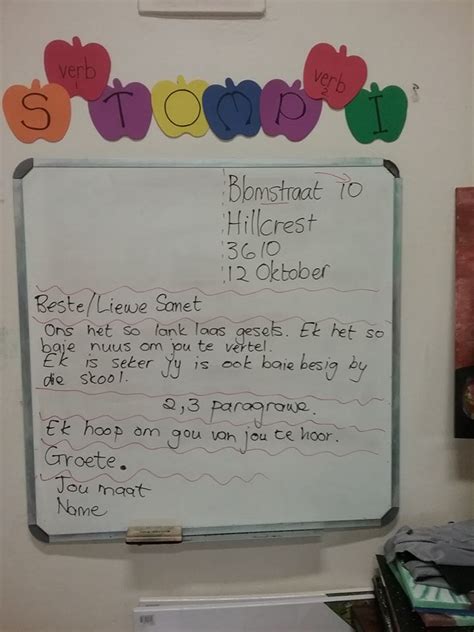 verb 1 verb 2
S T O M P I
Blomstraat 10
Hillcrest
3610
12 Oktober
Beste/Liewe Sanet
Ons het so lank laas gesels. Ek het so
baie nuus om jou te vertel.
Ek is seker jy is ook baie besig by
die skool.
2,3 paragrawe.
Ek hoop om gou van jou te hoor.
Groete.
Jou maat
Name